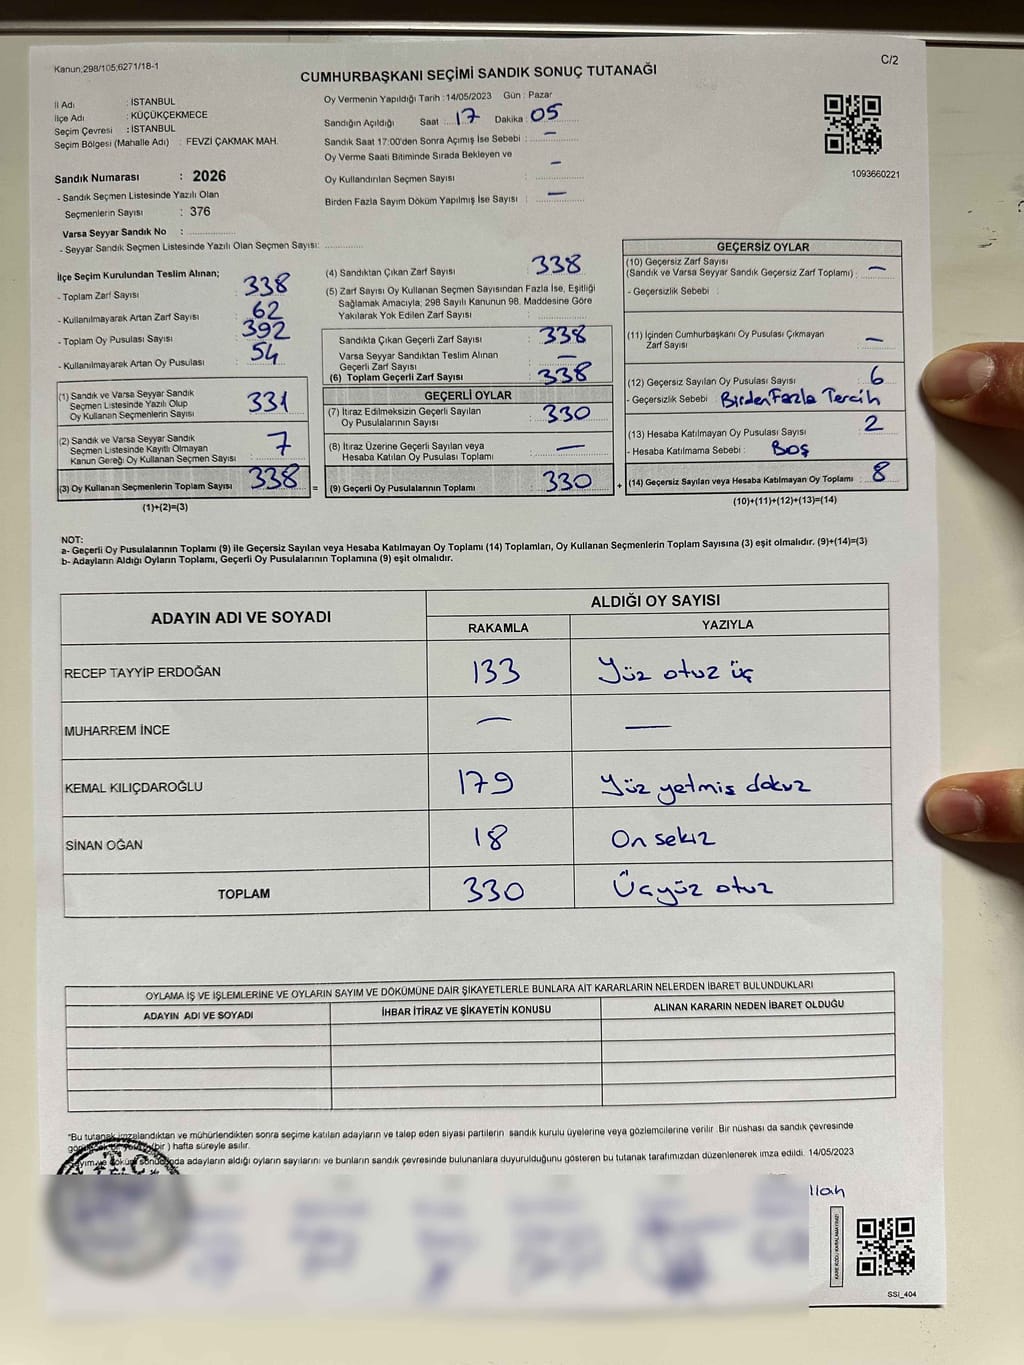 Kanun;298/105;6271/18-1
C/2
CUMHURBAŞKANI SEÇİMİ SANDIK SONUÇ TUTANAĞI
İl Adı : İSTANBUL
İlçe Adı : KÜÇÜKÇEKMECE
Seçim Çevresi : İSTANBUL
Seçim Bölgesi (Mahalle Adı) : FEVZİ ÇAKMAK MAH.
Sandık Numarası : 2026
- Sandık Seçmen Listesinde Yazılı Olan
Seçmenlerin Sayısı : 376
Varsa Seyyar Sandık No :
- Seyyar Sandık Seçmen Listesinde Yazılı Olan Seçmen Sayısı:
Oy Vermenin Yapıldığı Tarih :14/05/2023 Gün : Pazar
Sandığın Açıldığı Saat : 17 Dakika : 05
Sandık Saat 17:00'den Sonra Açımış İse Sebebi : —
Oy Verme Saati Bitiminde Sırada Bekleyen ve
Oy Kullandırılan Seçmen Sayısı : —
Birden Fazla Sayım Döküm Yapılmış İse Sayısı : —
1093660221
İlçe Seçim Kurulundan Teslim Alınan;
- Toplam Zarf Sayısı : 338
- Kullanılmayarak Artan Zarf Sayısı : 62
- Toplam Oy Pusulası Sayısı : 392
- Kullanılmayarak Artan Oy Pusulası : 54
(1) Sandık ve Varsa Seyyar Sandık
Seçmen Listesinde Yazılı Olup
Oy Kullanan Seçmenlerin Sayısı : 331
(2) Sandık ve Varsa Seyyar Sandık
Seçmen Listesinde Kayıtlı Olmayan
Kanun Gereği Oy Kullanan Seçmen Sayısı : 7
(3) Oy Kullanan Seçmenlerin Toplam Sayısı : 338
(1)+(2)=(3)
=
(4) Sandıktan Çıkan Zarf Sayısı : 338
(5) Zarf Sayısı Oy Kullanan Seçmen Sayısından Fazla İse, Eşitliği
Sağlamak Amacıyla; 298 Sayılı Kanunun 98. Maddesine Göre
Yakılarak Yok Edilen Zarf Sayısı :
Sandıkta Çıkan Geçerli Zarf Sayısı : 338
Varsa Seyyar Sandıktan Teslim Alınan
Geçerli Zarf Sayısı : —
(6) Toplam Geçerli Zarf Sayısı : 338
GEÇERLİ OYLAR
(7) İtiraz Edilmeksizin Geçerli Sayılan
Oy Pusulasının Sayısı : 330
(8) İtiraz Üzerine Geçerli Sayılan veya
Hesaba Katılan Oy Pusulası Toplamı : —
(9) Geçerli Oy Pusulalarının Toplamı : 330
+
GEÇERSİZ OYLAR
(10) Geçersiz Zarf Sayısı
(Sandık ve Varsa Seyyar Sandık Geçersiz Zarf Toplamı) : —
- Geçersizlik Sebebi :
(11) İçinden Cumhurbaşkanı Oy Pusulası Çıkmayan
Zarf Sayısı : —
(12) Geçersiz Sayılan Oy Pusulası Sayısı : 6
- Geçersizlik Sebebi : Birden Fazla Tercih
(13) Hesaba Katılmayan Oy Pusulası Sayısı : 2
- Hesaba Katılmama Sebebi : Boş
(14) Geçersiz Sayılan veya Hesaba Katılmayan Oy Toplamı : 8
(10)+(11)+(12)+(13)=(14)
NOT:
a- Geçerli Oy Pusulalarının Toplamı (9) ile Geçersiz Sayılan veya Hesaba Katılmayan Oy Toplamı (14) Toplamları, Oy Kullanan Seçmenlerin Toplam Sayısına (3) eşit olmalıdır. (9)+(14)=(3)
b- Adayların Aldığı Oyların Toplamı, Geçerli Oy Pusulalarının Toplamına (9) eşit olmalıdır.
ADAYIN ADI VE SOYADI
ALDIĞI OY SAYISI
RAKAMLA YAZIYLA
RECEP TAYYİP ERDOĞAN 133 Yüz otuz üç
MUHARREM İNCE — —
KEMAL KILIÇDAROĞLU 179 Yüz yetmiş dokuz
SİNAN OĞAN 18 On sekiz
TOPLAM 330 Üçyüz otuz
OYLAMA İŞ VE İŞLEMLERİNE VE OYLARIN SAYIM VE DÖKÜMÜNE DAİR ŞİKAYETLERLE BUNLARA AİT KARARLARIN NELERDEN İBARET BULUNDUKLARI
ADAYIN ADI VE SOYADI İHBAR İTİRAZ VE ŞİKAYETİN KONUSU ALINAN KARARIN NEDEN İBARET OLDUĞU
*Bu tutanak imzalandıktan ve mühürlendikten sonra seçime katılan adayların ve talep eden siyasi partilerin sandık kurulu üyelerine veya gözlemcilerine verilir .Bir nüshası da sandık çevresinde
(bir ) hafta süreyle asılır.
adayların aldığı oyların sayılarını ve bunların sandık çevresinde bulunanlara duyurulduğunu gösteren bu tutanak tarafımızdan düzenlenerek imza edildi. 14/05/2023
llah
SSI_404